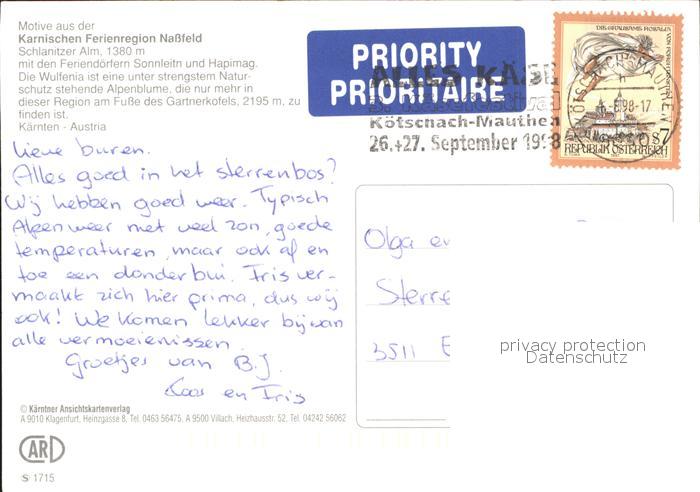 Motive aus der
Karnischen Ferienregion Naßfeld
Schlanitzer Alm, 1380 m
mit den Feriendörfern Sonnleitn und Hapimag.
Die Wulfenia ist eine unter strengstem Natur-
schutz stehende Alpenblume, die nur mehr in
dieser Region am Fuße des Gartnerkofels, 2195 m, zu
finden ist.
Kärnten - Austria
PRIORITY
PRIORITAIRE
ALLES KÄSE
Kötschach-Mauthen
26.+27. September 1998
REPUBLIK ÖSTERREICH S7
Lieve buren.
Alles goed in het sterrenbos?
Wij hebben goed weer. Typisch
Alpenweer met veel zon, goede
temperaturen, maar ook af en
toe een donderbui. Iris ver-
maakt zich hier prima, dus wij
ook! We komen lekker bij van
alle vermoeienissen.
Groetjes van B.J.
Koos en Iris
Olga en
Sterre
3511
privacy protection
Datenschutz
© Kärntner Ansichtskartenverlag
A 9010 Klagenfurt, Heinzgasse 8, Tel. 0463 56475, A 9500 Villach, Heizhausstr. 52, Tel. 04242 56062
CARD
S 1715